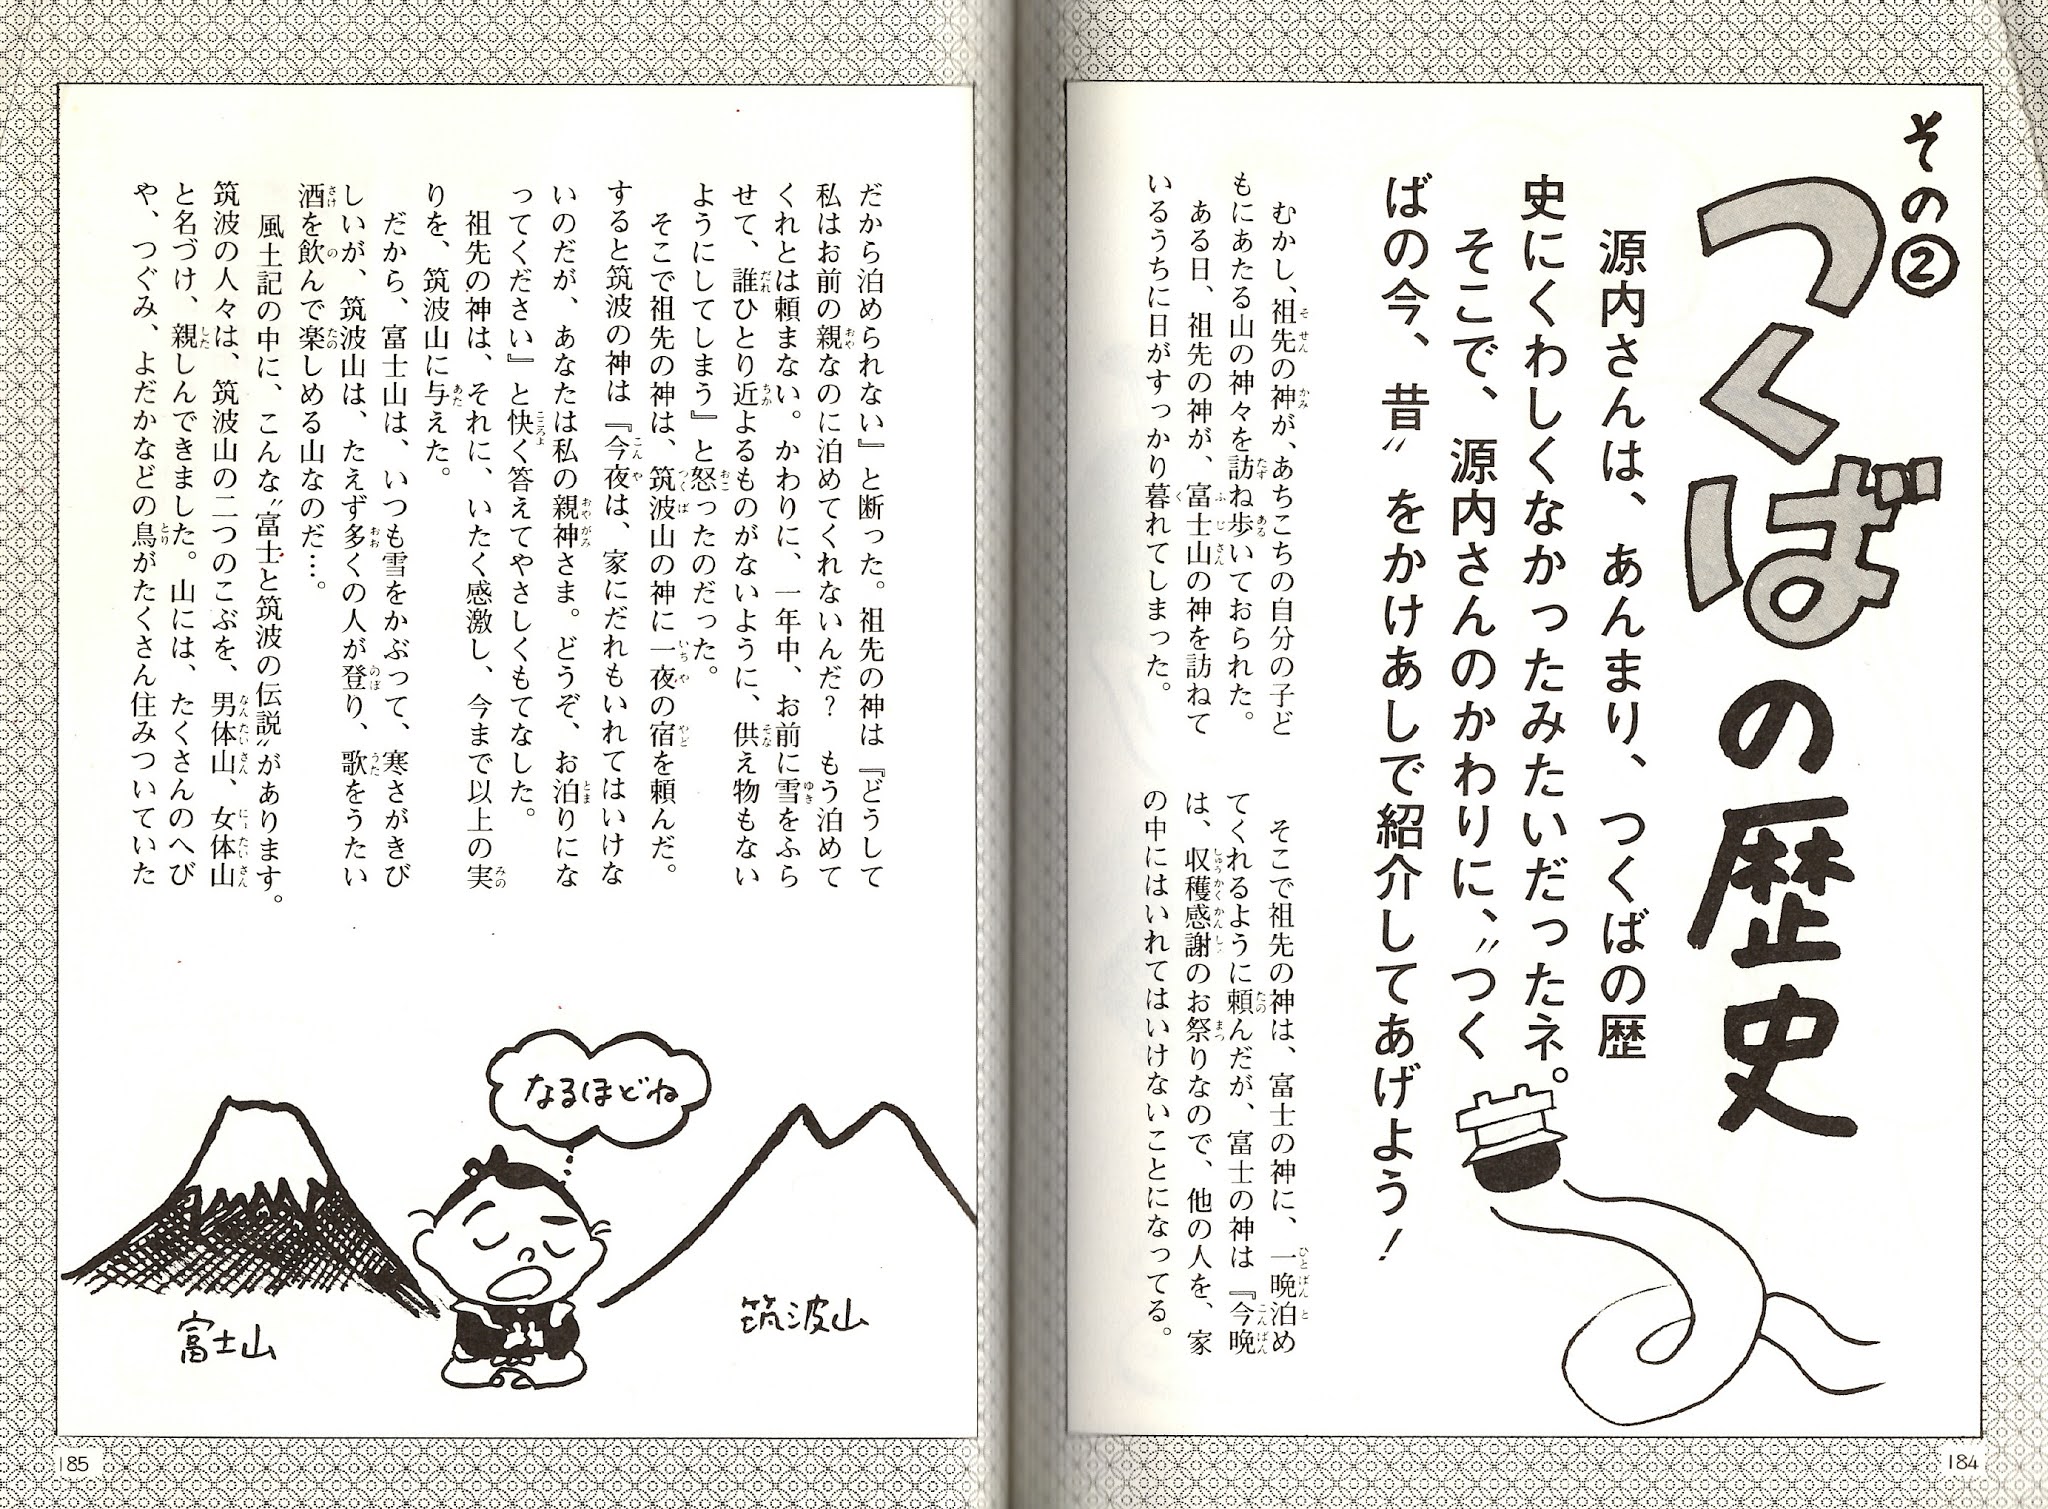 その②
つくばの歴史
源内さんは、あんまり、つくばの歴
史にくわしくなかったみたいだったネ。
そこで、源内さんのかわりに、〝つく
ばの今、昔〟をかけあしで紹介してあげよう!
むかし、祖先の神が、あちこちの自分の子ど
もにあたる山の神々を訪ね歩いておられた。
ある日、祖先の神が、富士山の神を訪ねて
いるうちに日がすっかり暮れてしまった。
そこで祖先の神は、富士の神に、一晩泊め
てくれるように頼んだだが、富士の神は『今晩
は、収穫感謝のお祭りなので、他の人を、家
の中にはいれてはいけないことになってる。
184
だから泊められない』と断った。祖先の神は『どうして
私はお前の親なのに泊めてくれないんだ? もう泊めて
くれとは頼まない。かわりに、一年中、お前に雪をふら
せて、誰ひとり近よるものがないように、供え物もない
ようにしてしまう』と怒ったのだった。
そこで祖先の神は、筑波山の神に一夜の宿を頼んだ。
すると筑波の神は『今夜は、家にだれもいれてはいけな
いのだが、あなたは私の親神さま。どうぞ、お泊りにな
ってください』と快く答えてやさしくもてなした。
祖先の神は、それに、いたく感激し、今まで以上の実
りを、筑波山に与えた。
だから、富士山は、いつも雪をかぶって、寒さがきび
しいが、筑波山は、たえず多くの人が登り、歌をうたい
酒を飲んで楽しめる山なのだ…。
風土記の中に、こんな〝富士と筑波の伝説〟があります。
筑波の人々は、筑波山の二つのこぶを、男体山、女体山
と名づけ、親しんできました。山には、たくさんのへび
や、つぐみ、よだかなどの鳥がたくさん住みついていた
なるほどね
筑波山
富士山
185